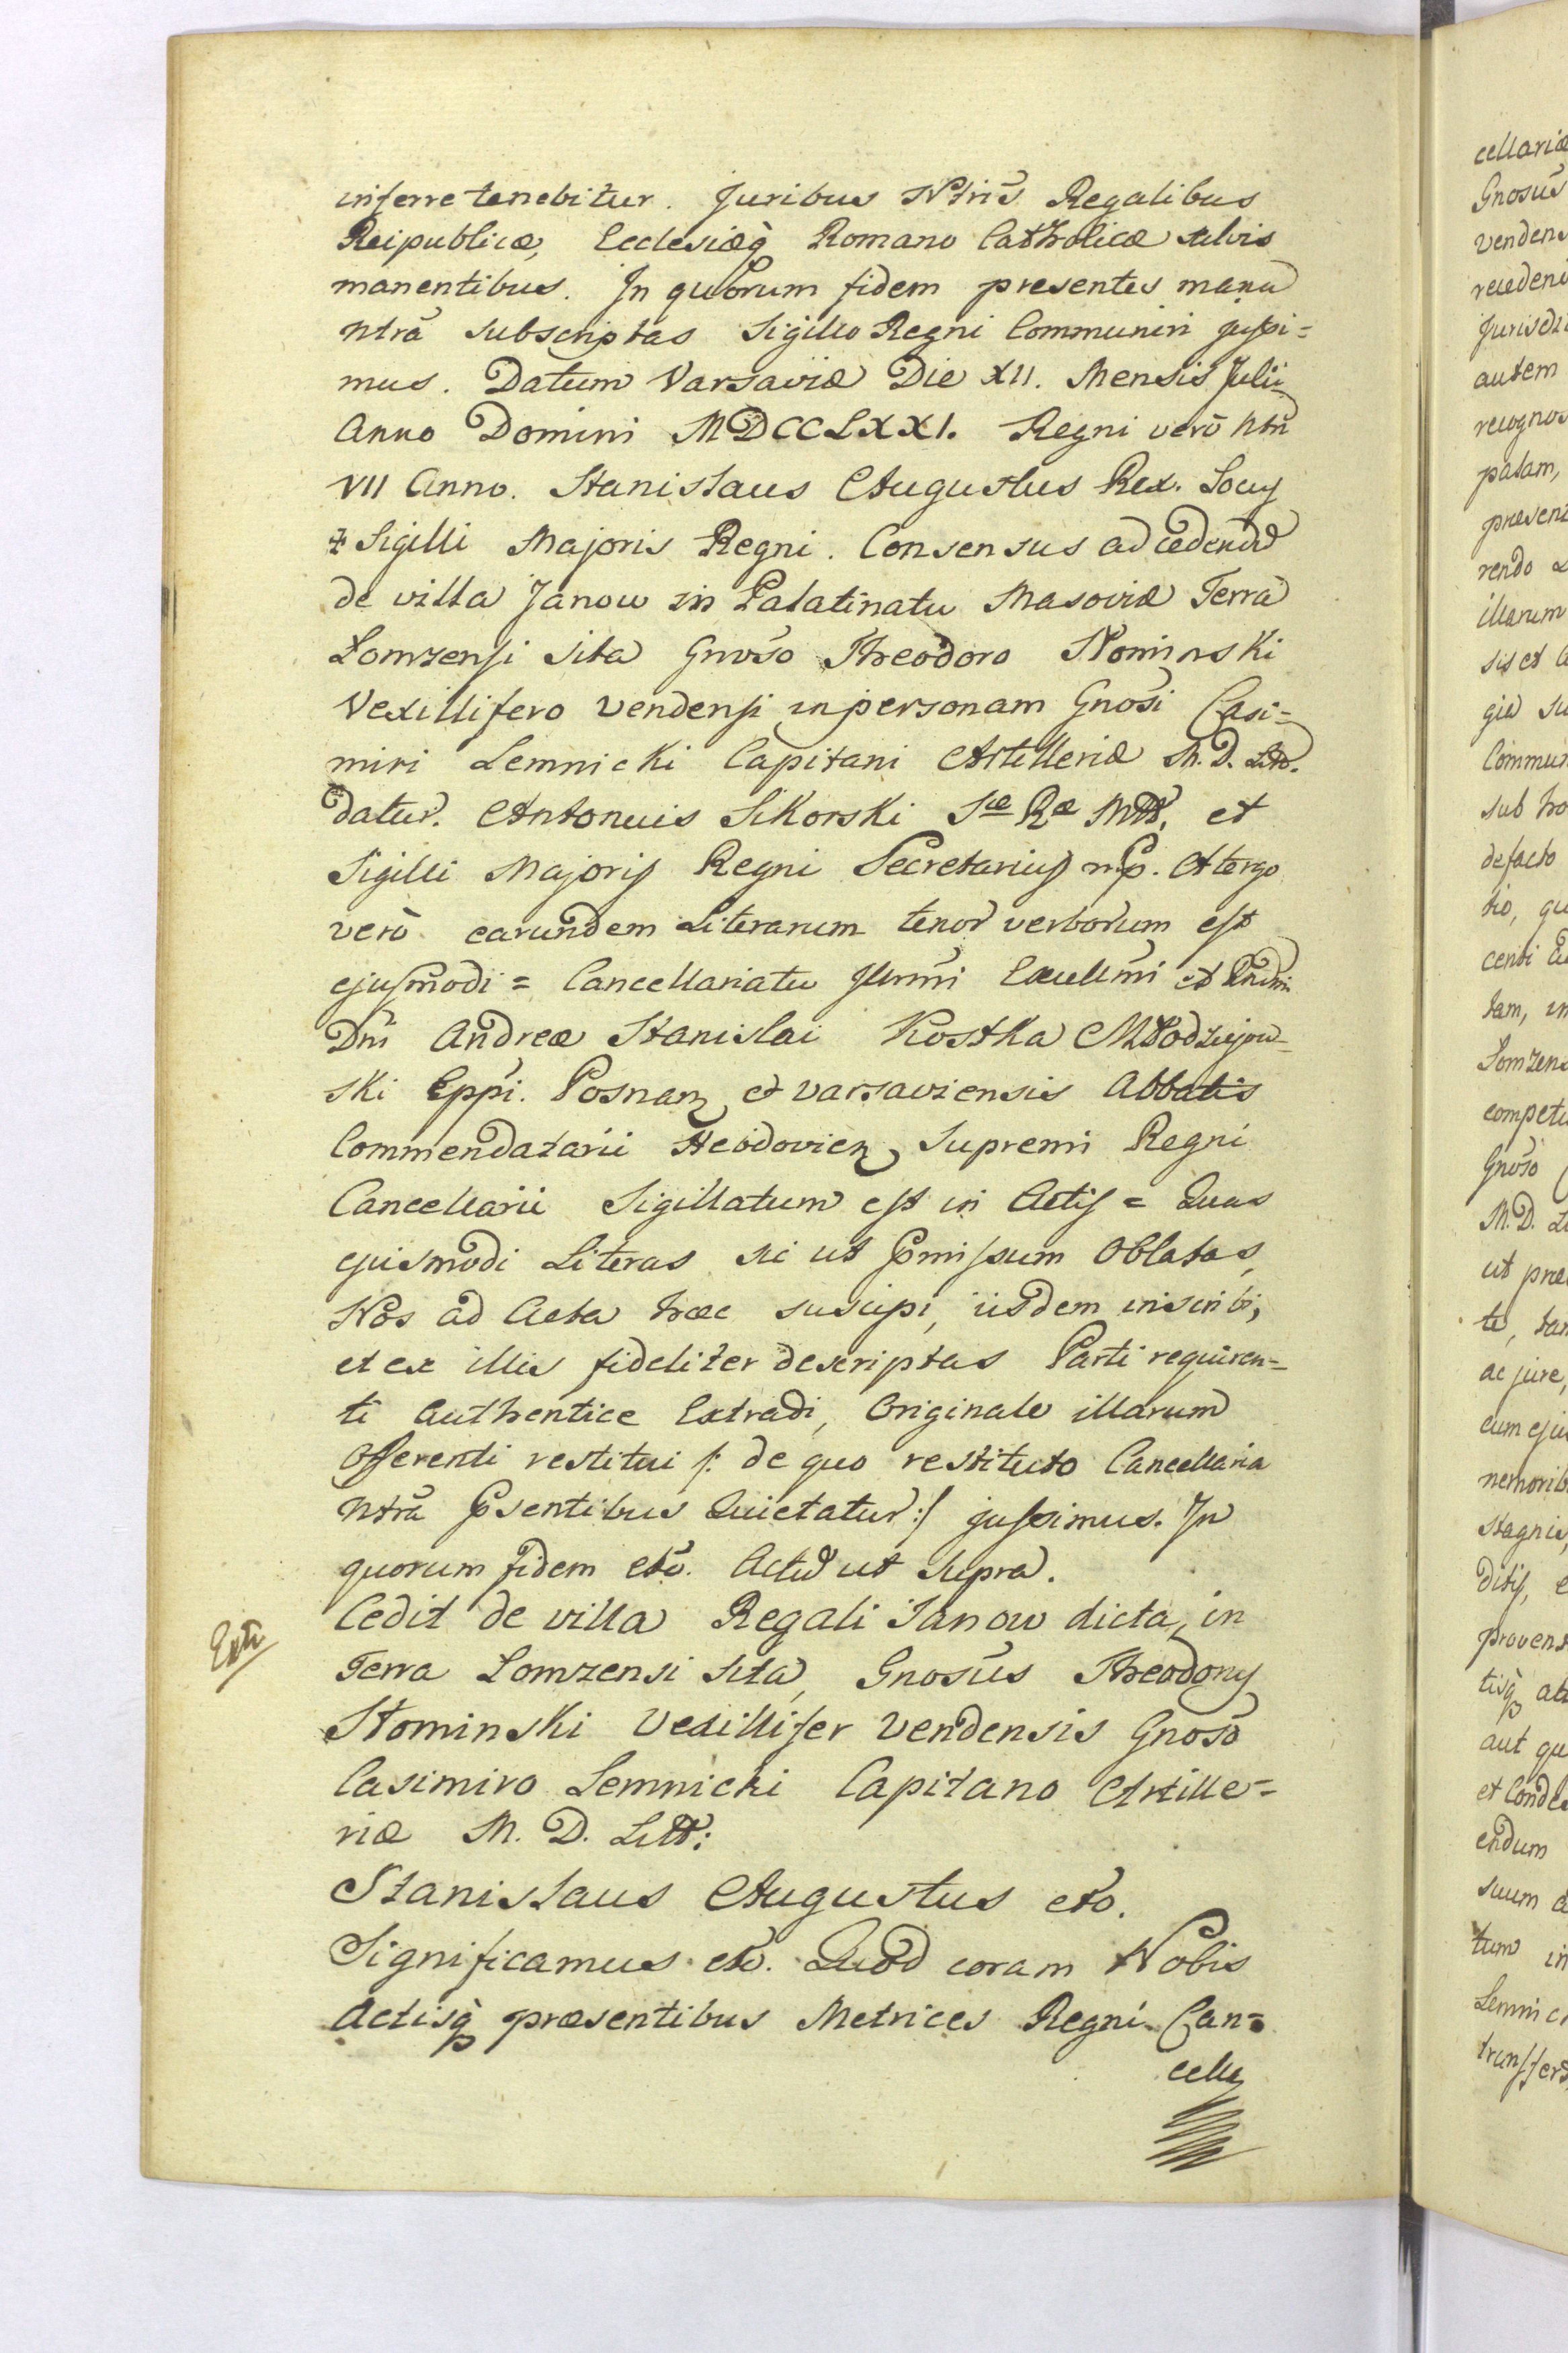 inferre tenebitur. Juribus Ntris Regalibus
Reipublicæ, Ecclesiæq̀ Romano Catholicæ salvis
manentibus. In quorum fidem presentes manu
Ntrā subscriptas Sigillo Regni Communiri jussi=
mus. Datum Varsaviæ Die XII. Mensis Julii
Anno Domini MDCCLXXI. Regni verò Ntri
VII Anno. Stanislaus Augustus Rex. Locus
Sigilli Majoris Regni. Consensus ad cedend
de villa Janow in Palatinatu Masoviæ Terra
Lomzensi sita Gnoso Theodoro Słominski
Vexillifero Vendensi in personam Gnosi Casi=
miri Lemnicki Capitani Artilleriæ M. D. Litt.
datur. Antonius Sikorski Sæ Ræ Mttis, et
Sigilli Majoris Regni Secretarius mp. A tergo
verò earundem Literarum tenor verborum est
ejusmodi = Cancellariatu Illmi Excellmi et Rndmi
Dni Andreæ Stanislai Kostka Młodziejow=
ski Eppi. Posnan et Varsaviensis Abbatis
Commendatarii Hebdovien, Supremi Regni
Cancellarii Sigillatum est in Actis = Quas
ejusmodi Literas sic ut pmissum Oblatas,
Nos ad Acta hæc suscipi, iisdem inscribi,
et ex illis fideliter descriptas Parti requiren=
ti authentice Extradi, Originale illarum
Offerenti restitui /: de quo restituto Cancellaria
Ntrā psentibus Quietatur :/ jussimus. In
quorum fidem etc. Actu ut supra.
Extr
Cedit de villa Regali Janow dicta, in
Terra Lomzensi sita, Gnosus Theodorus
Słominski Vexillifer Vendensis Gnoso
Casimiro Lemnicki Capitano Artille=
riæ M. D. Litt:
Stanislaus Augustus etc.
Significamus etc. Quod coram Nobis
Actisq̀ præsentibus Metrices Regni Can=
cella
cellariæ
Gnosus
vendens
recedend
Jurisdi
autem
recognos
palam,
præsent
rendo
illarum
sis et
gia su
Commun
sub
defacto
tio, qu
tam, in
Lomzens
compet
Gnoso
M. D. L
ut præ
te, tam
ac jure,
cum eju
nemorib
stagnis,
ditis, e
provent
tisq̀ ab
aut qu
et Conde
endum
suum
tum in
Lemnic
transfer